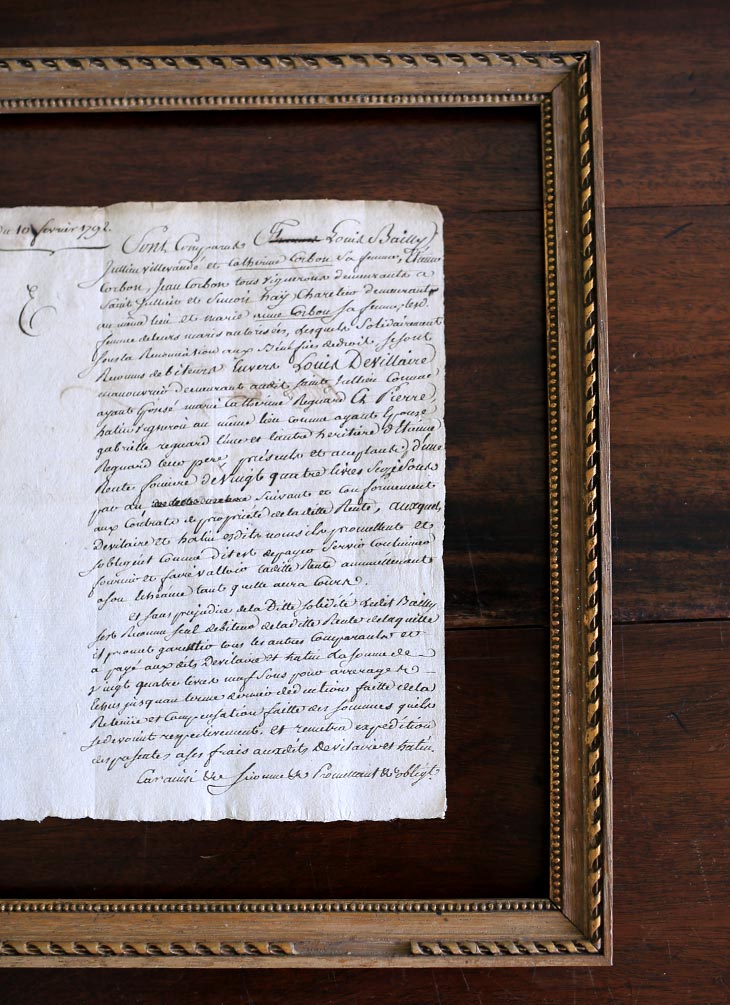 Du 10 fevrier 1792.
Sont Comparus Louis Bailly
Jullien villerandé et Catherine Corbon Sa femme, Etienne
Corbon, Jean Corbon tous vignerons demeurants a
Saint Jullien et Simon hay Charetier demeurant
au même lieu et marie anne Corbon Sa femme, les d.
femme de leurs maris autorisées, Lesquels Solidairement
Sous la Renonciation aux Bénéfices de droit, se sont
Reconnus débiteurs Envers Louis Devillaire
manouvrier demeurant audit Saint Jullien Comme
ayant Epousé marie Catherine Regnard Et Pierre
hatin vigneron au même lieu comme ayant Epousé
gabrielle regnard L'une et l'autre heritière d'Etienne
Regnard leur pere présents et acceptants, d'une
Rente fonciere de Vingt quatre livres Seize Sous
par an suivante et Conformement
aux Contrats de propriété de la ditte Rente, auxquels
devilaire et hatin esdits noms ils promettent et
s'obligent Comme dit est de payer Servir Continuer
fournir et faire valloir laditte Rente annuellement
a son Echéance tant quelle aura Cours.
et sans prejudice de la Ditte solidité Ledit Bailly
s'est Reconnu seul debiteur de laditte Rente de laquelle
et promet garantir tous les autres Comparants et
a payé aux dits devilaire et hatin La somme de
Vingt quatre livres neuf Sous pour arrerages
Echus jusqu'au terme dernier déductions faitte de la
Retenue et Compensation faitte des sommes qu'ils
se devoient respectivement. et remettra expédition
des presentes a ses frais auxdits devilaire et hatin.
Car ainsi &c Promettant &c obligt.
E